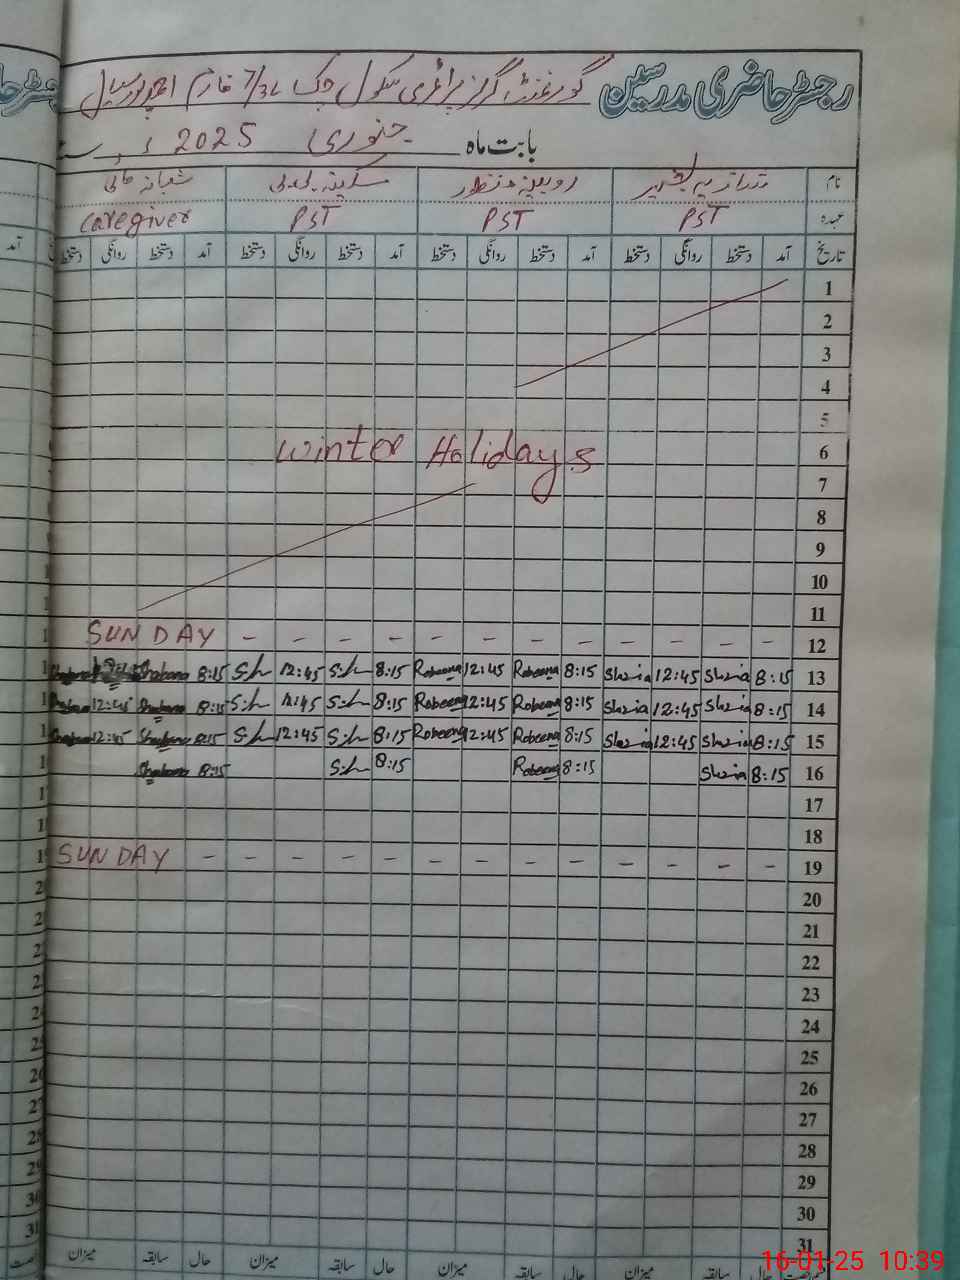 رجسٹر حاضری مدرسین گورنمنٹ گرلز پرائمری سکول چک 7/3L فارم احمد پور سیال
بابت ماہ جنوری 2025ء
نام شازیہ بشیر روبینہ منظور سکینہ بی بی شبانہ
عہدہ PST PST PST Caregiver
تاریخ آمد دستخط روانگی دستخط آمد دستخط روانگی دستخط آمد دستخط روانگی دستخط آمد دستخط روانگی دستخط
1
2
3
4
5
6 Winter Holidays
7
8
9
10
11
12 SUNDAY - - - - - - - - - - - -
13 8:15 Shazia 12:45 Shazia 8:15 Robeena 12:45 Robeena 8:15 S.h 12:45 S.h 8:15 Shabana Shabana
14 8:15 Shazia 12:45 Shazia 8:15 Robeena 12:45 Robeena 8:15 S.h 12:45 S.h 8:15 Shabana 12:45 Shabana
15 8:15 Shazia 12:45 Shazia 8:15 Robeena 12:45 Robeena 8:15 S.h 12:45 S.h 8:15 Shabana 12:45 Shabana
16 8:15 Shazia 8:15 Robeena 8:15 S.h 8:15 Shabana
17
18
19 SUNDAY - - - - - - - - - - - - -
20
21
22
23
24
25
26
27
28
29
30
31
حال سابقہ میزان حال سابقہ میزان حال سابقہ میزان حال سابقہ میزان
16-01-25 10:39